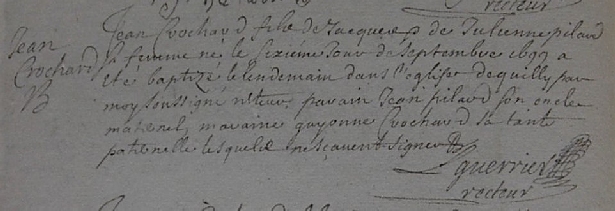 recteur
Jean
Crochard
B
Jean Crochard fils de Jacques & de Julienne pilard
sa femme né le sixiéme Jour de Septembre 1699 a
été baptizé le lendemain dans l'eglise de quilly par
moy soussigné recteur, parain Jean pilard son oncle
maternel, maraine guyonne Crochard sa tante
paternelle lesquels ne sçavent signer
guerrier
recteur